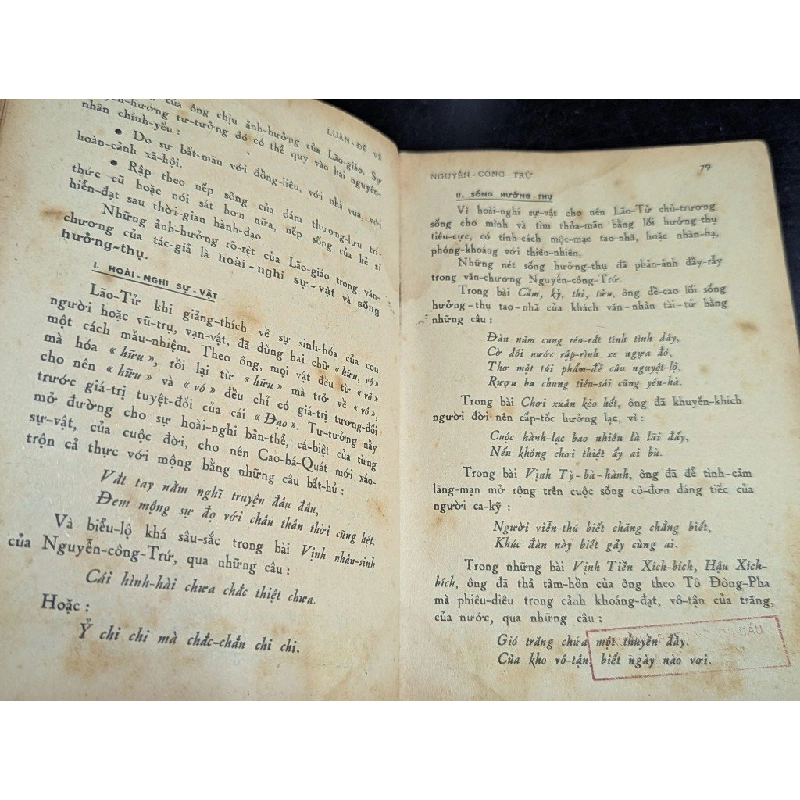 LUẬN-ĐỀ VỀ
của ông chịu ảnh-hưởng của Lão-giáo. Sự
hưởng tư-tưởng đó có thể quy vào hai nguyên-
nhân chính-yếu :
• Do sự bất-mãn với đồng-liêu, với nhà vua, với
hoàn-cảnh xã-hội.
• Rập theo nếp sống của đám thượng-lưu trí-
thức cũ hoặc nói sát hơn nữa, nếp sống của kẻ sĩ
hiển-đạt sau thời-gian hành-đạo.
Những ảnh-hưởng rõ-rệt của Lão-giáo trong văn-
chương của tác-giả là hoài-nghi sự-vật và sống
hưởng-thụ.
I. HOÀI-NGHI SỰ-VẬT
Lão-Tử khi giảng-thích về sự sinh-hóa của con
người hoặc vũ-trụ, vạn-vật, đã dùng hai chữ «hữu, vô»
một cách mầu-nhiệm. Theo ông, mọi vật đều từ «vô»
mà hóa «hữu», rồi lại từ «hữu» mà trở về «vô»,
cho nên «hữu» và «vô» đều chỉ có giá-trị tương-đối
trước giá-trị tuyệt-đối của cái «Đạo». Tư-tưởng này
mở đường cho sự hoài-nghi bản-thể, cá-biệt của từng
sự-vật, của cuộc đời, cho nên Cao-bá-Quát mới xáo-
trộn cả thực với mộng bằng những câu bất-hủ :
Vắt tay nằm nghĩ truyện đâu đâu,
Đem mộng sự đo với chân thân thời cũng hết.
Và biểu-lộ khá sâu-sắc trong bài Vịnh nhân-sinh
của Nguyễn-công-Trứ, qua những câu :
Cái hình-hài chưa chắc thiệt chưa.
Hoặc :
Ỷ chi chi mà chắc-chắn chi chi.
NGUYỄN-CÔNG TRỨ 79
II. SỐNG HƯỞNG-THỤ
Vì hoài-nghi sự-vật cho nên Lão-Tử chủ-trương
sống cho mình và tìm thỏa-mãn bằng lối hưởng-thụ
tiêu-cực, có tính-cách mộc-mạc tao-nhã, hoặc nhàn-hạ,
phóng-khoáng với thiên-nhiên.
Những nét sống hưởng-thụ đã phản-ảnh đầy-rẫy
trong văn-chương Nguyễn-công-Trứ.
Trong bài Cầm, kỳ, thi, tửu, ông đề-cao lối sống
hưởng-thụ tao-nhã của khách văn-nhân tài-tử bằng
những câu :
Đàn năm cung réo-rắt tính tình đây,
Cờ đôi nước rập-rình xe ngựa đó,
Thơ một túi phẩm-đề câu nguyệt-lộ,
Rượu ba chung tiêu-sái cùng yên-hà.
Trong bài Chơi xuân kẻo hết, ông đã khuyến-khích
người đời nên cấp-tốc hưởng lạc, vì :
Cuộc hành-lạc bao nhiêu là lãi đấy,
Nếu không chơi thiệt ấy ai bù.
Trong bài Vịnh Tỳ-bà-hành, ông đã để tình-cảm
lãng-mạn mở rộng trên cuộc sống cô-đơn đáng tiếc của
người ca-kỹ :
Người viễn thú biết chăng chẳng biết,
Khúc đàn này biết gảy cùng ai.
Trong những bài Vịnh Tiền Xích-bích, Hậu Xích-
bích, ông đã thả tâm-hồn của ông theo Tô Đông-Pha
mà phiêu-diêu trong cảnh khoáng-đạt, vô-tận của trăng,
của nước, qua những câu :
Gió trăng chứa một thuyền đầy.
Của kho vô-tận, biết ngày nào vơi.